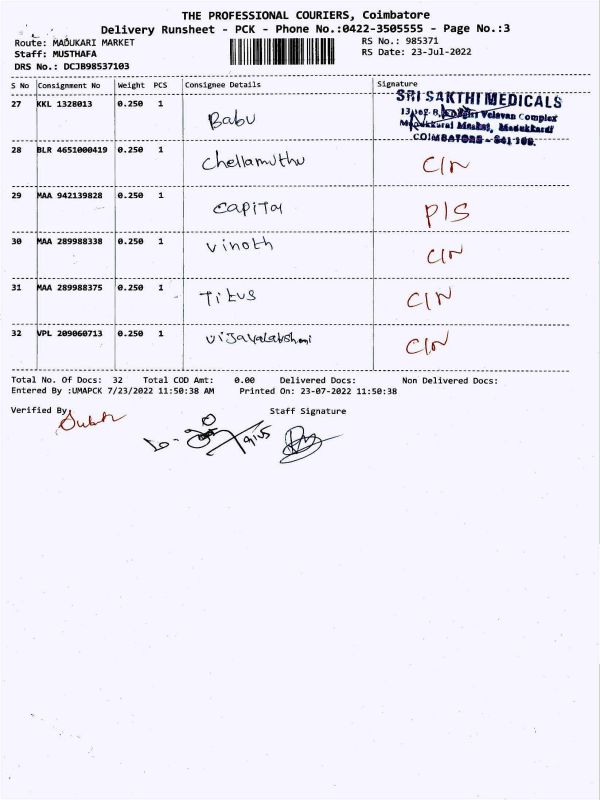 THE PROFESSIONAL COURIERS, Coimbatore
Delivery Runsheet - PCK - Phone No.:0422-3505555 - Page No.:3
Route: MADUKARI MARKET
RS No.: 985371
Staff: MUSTHAFA
RS Date: 23-Jul-2022
DRS No.: DCJB98537103
S No Consignment No Weight PCS Consignee Details Signature
27 KKL 1328013 0.250 1 Babu
SRI SAKTHI MEDICALS
Velavan Complex
COIMBATORE - 641 105.
28 BLR 4651000419 0.250 1 Chellamuthu C/N
29 MAA 942139828 0.250 1 Capital P/S
30 MAA 289988338 0.250 1 Vinoth C/N
31 MAA 289988375 0.250 1 Titus C/N
32 VPL 209060713 0.250 1 Vijayalakshmi C/N
Total No. Of Docs: 32 Total COD Amt: 0.00 Delivered Docs: Non Delivered Docs:
Entered By :UMAPCK 7/23/2022 11:50:38 AM Printed On: 23-07-2022 11:50:38
Verified By Staff Signature